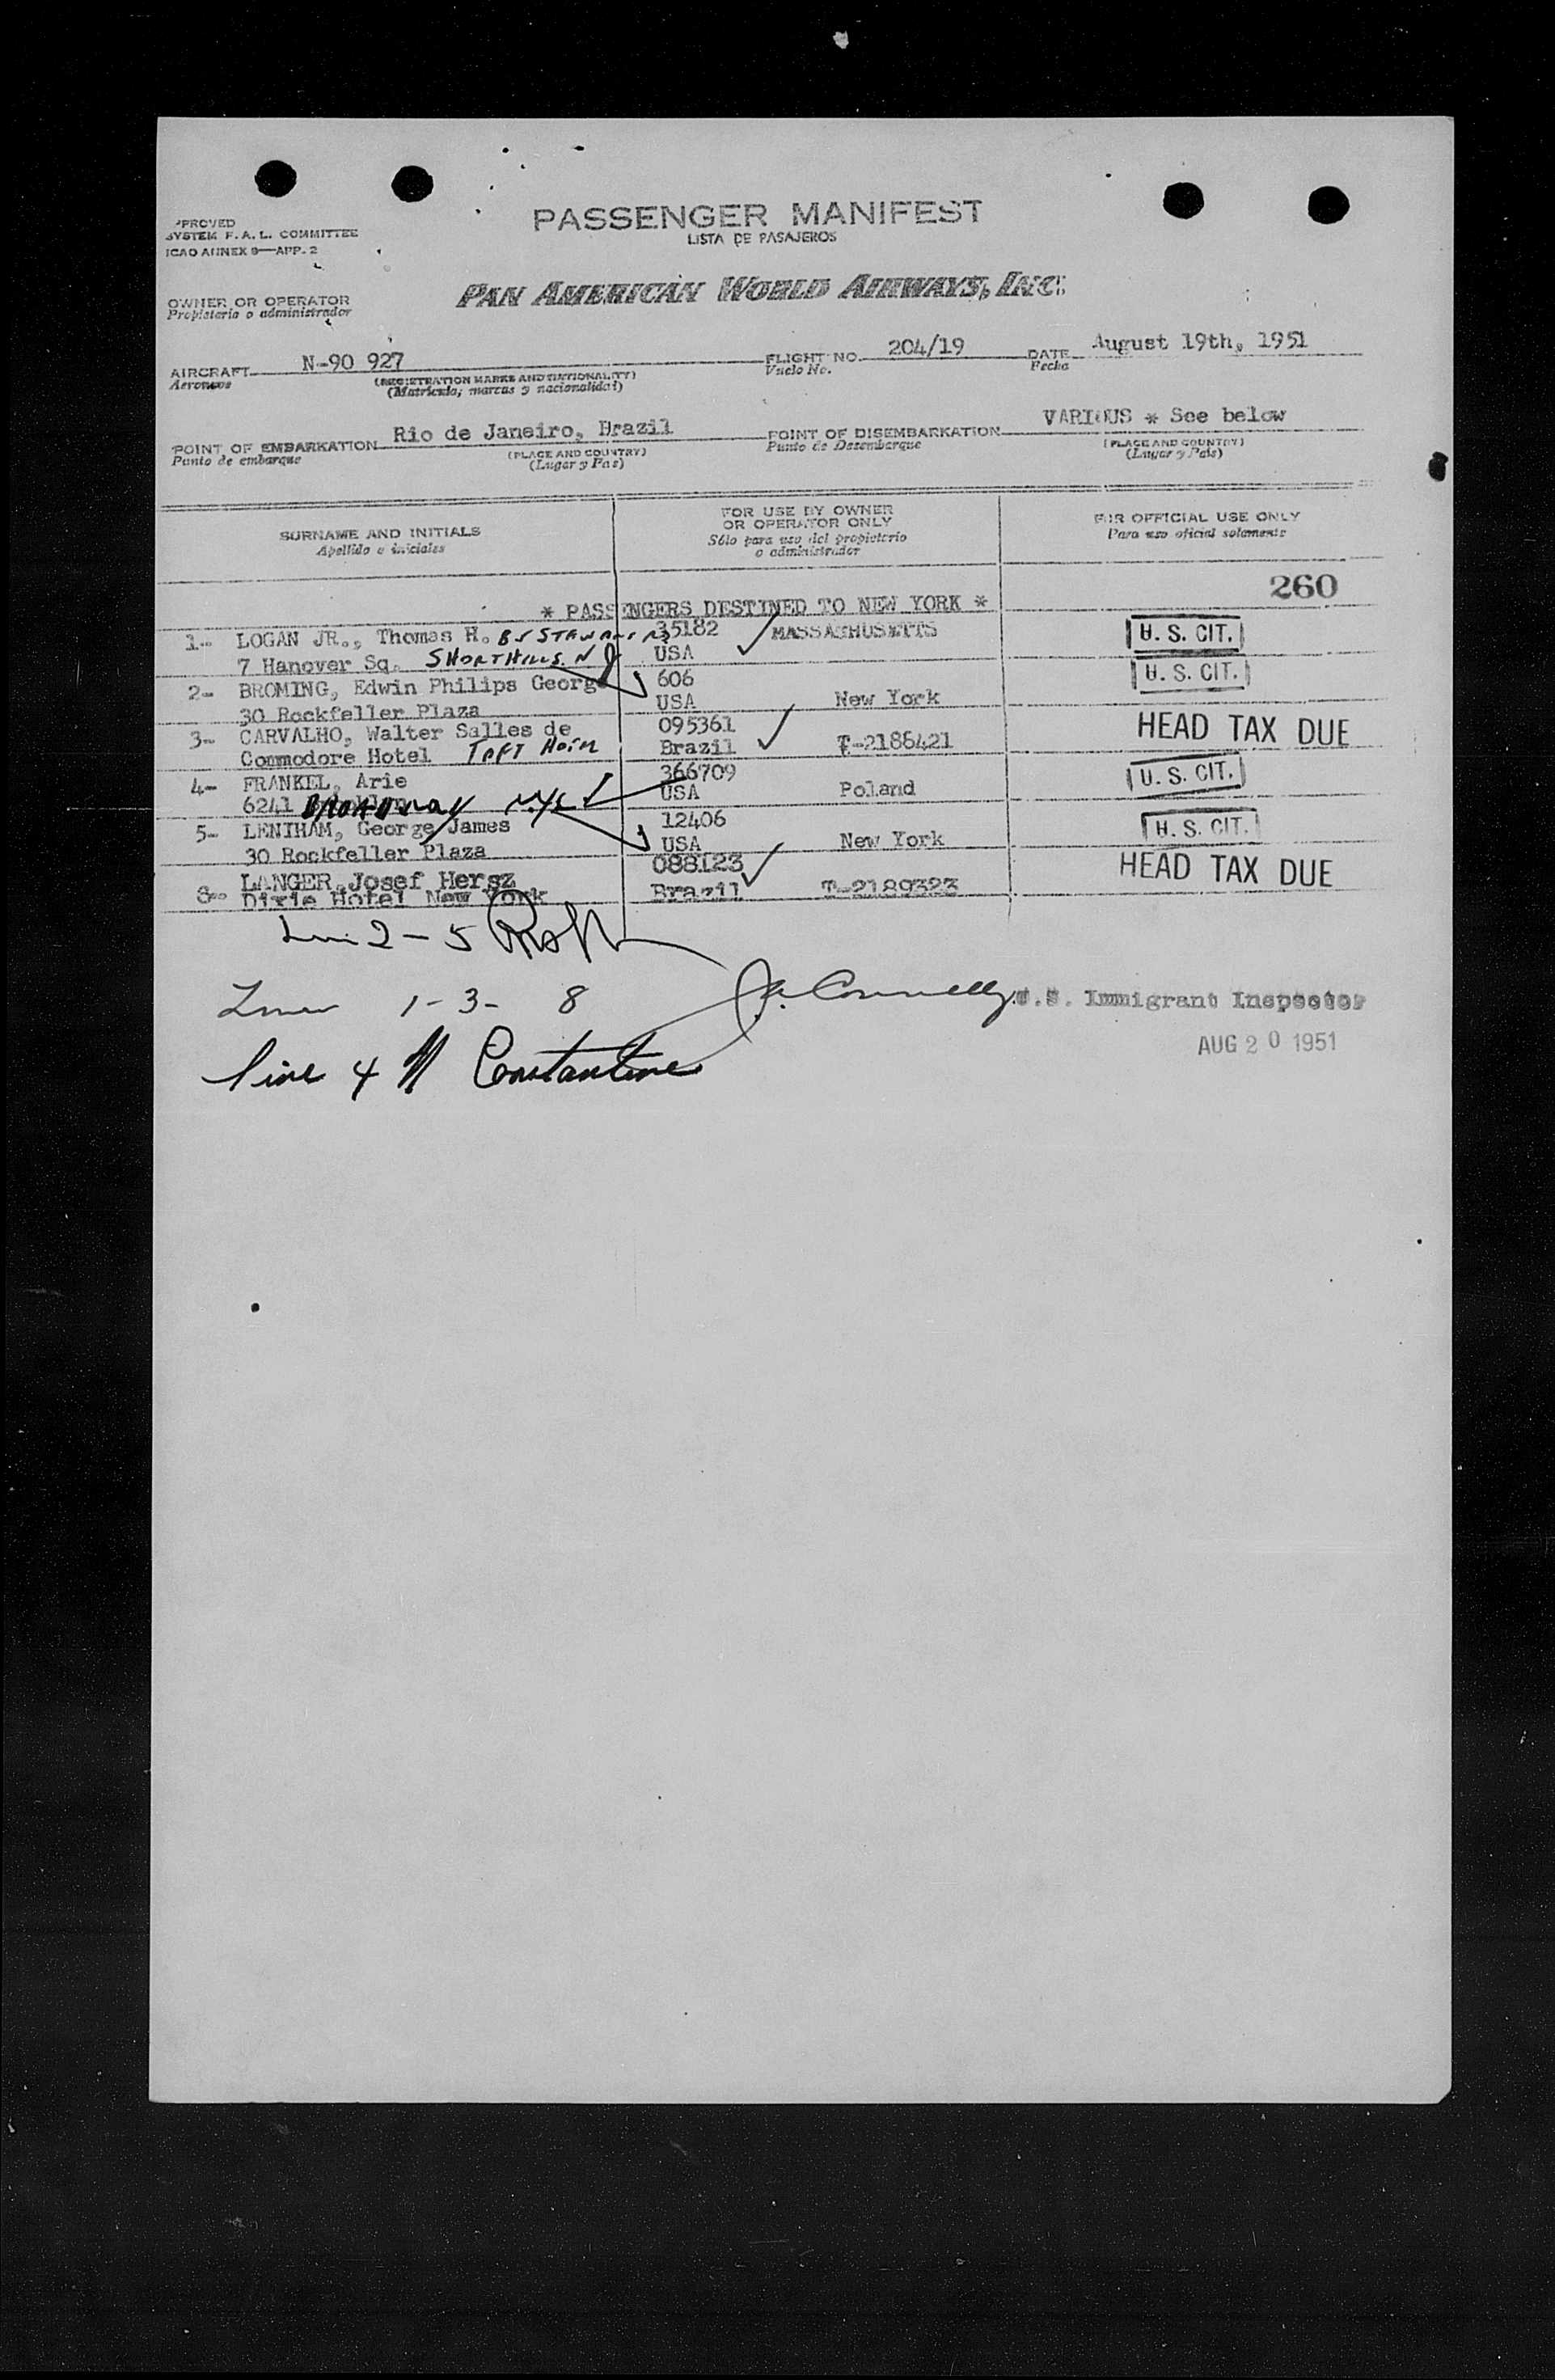 PASSENGER MANIFEST
LISTA DE PASAJEROS
SYSTEM F. A. L. COMMITTEE
ICAO ANNEX 9—APP. 2
PAN AMERICAN WORLD AIRWAYS, INC.
OWNER OR OPERATOR
Propietario o administrador
AIRCRAFT N-90 927 FLIGHT NO. 204/19 DATE August 19th, 1951
Aeronave (REGISTRATION MARKS AND NATIONALITY) Vuelo No. Fecha
(Matricula, marcas y nacionalidad)
POINT OF EMBARKATION Rio de Janeiro, Brazil POINT OF DISEMBARKATION VARIOUS * See below
Punto de embarque (PLACE AND COUNTRY) Punto de Desembarque (PLACE AND COUNTRY)
(Lugar y Pas) (Lugar y Pais)
SURNAME AND INITIALS FOR USE BY OWNER OR OPERATOR ONLY FOR OFFICIAL USE ONLY
Apellido e iniciales Sólo para uso del propietario o administrador Para uso oficial solamente
260
* PASSENGERS DESTINED TO NEW YORK *
1- LOGAN JR., Thomas H. 35182 MASSACHUSETTS U. S. CIT.
7 Hanover Sq. SHORT HILLS. N J USA
2- BROMING, Edwin Philips George 606 U. S. CIT.
30 Rockfeller Plaza USA New York
3- CARVALHO, Walter Salles de 095361 HEAD TAX DUE
Commodore Hotel TAFT Brazil T-2186421
4- FRANKEL, Arie 366709 U. S. CIT.
6241 Broadway NYC USA Poland
5- LENIHAM, George James 12406 U. S. CIT.
30 Rockfeller Plaza USA New York
8- LANGER, Josef Hersz 088123 HEAD TAX DUE
Dixie Hotel New York Brazil T-2189323
2 - 5
1 - 3 - 8 J.A. Connelly U.S. Immigrant Inspector
AUG 20 1951
line 4 Constantine